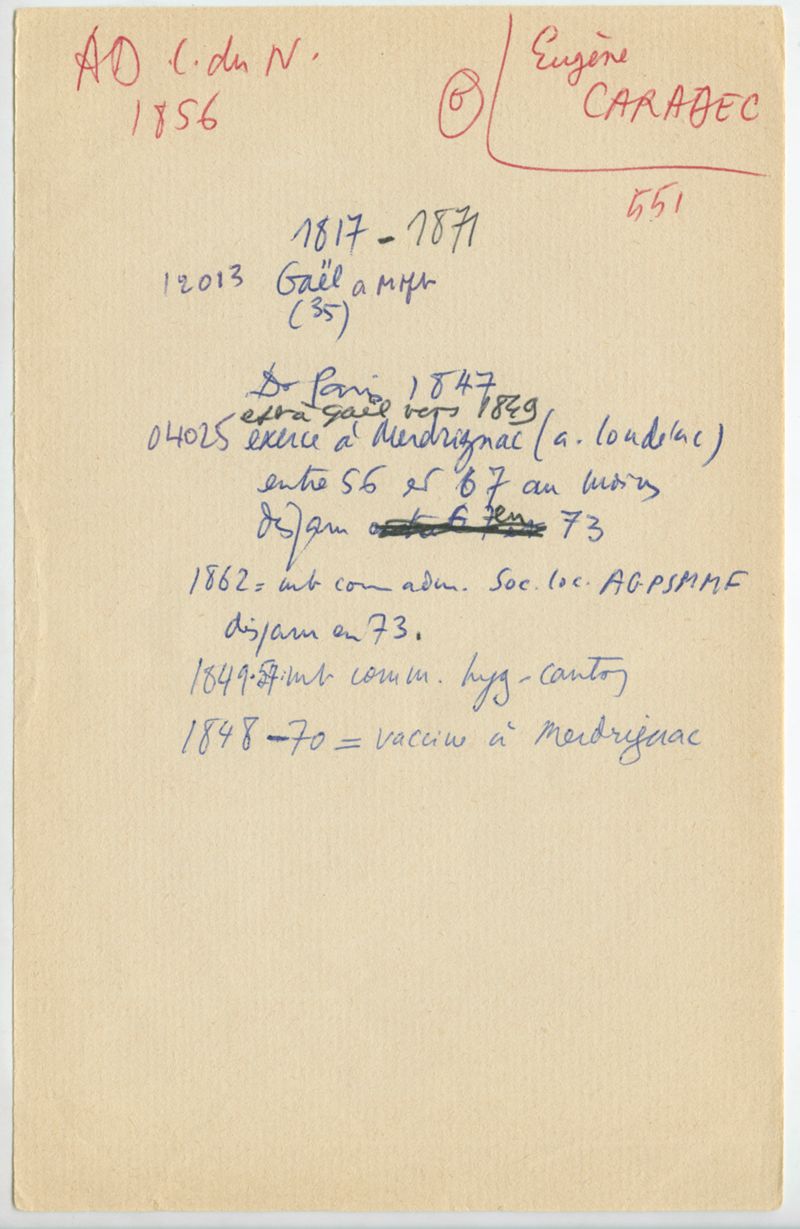 AD C. du N.
1856
6
Eugène
CARADEC
551
1817 - 1871
12013 Gaël a Mft
(35)
Dr Paris 1847
est à Gaël vers 1849
04025 exerce à Merdrignac (a. Loudéac)
entre 56 et 67 au moins
disparu en 73
1862 = mb com adm. Soc. loc. AGPSMMF
disparu en 73.
1849-57: mb comm. hyg-canton
1848 - 70 = vaccine à Merdrignac